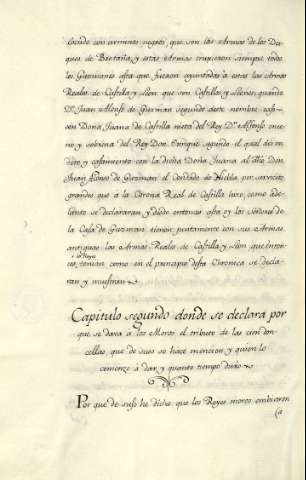 locido con arminios negros, que son las Armas de los Du-
ques de Bretaña, y estas Armas truxeron siempre todos
los Guzmanes asta que fueron ayuntadas a estas las Armas
Reales de Castilla y Leon que son Castillos y Leones, quando
D.n Juan Alonso de Guzman segundo deste nombre caso
con Doña Juana de Castilla nieta del Rey D.n Alfonso onze
no y sobrina del Rey Don Enrique segundo el qual dio en
dote y casamiento con la dicha Doña Juana al dho Don
Juan Alonso de Guzman el Condado de Niebla por servicios
grandes que a la Corona Real de Castilla hizo, como ade-
lante se declararan y desde entonzes asta oy los Señores de
la Casa de Guzman tienen juntamente con sus Armas
antiguas las Armas Reales de Castilla y Leon que enton-
ces los Reyes tenian como en el principio desta Chronica se decla-
ran y muestran
Capitulo segundo donde se declara por
que se dava a los Moros el tributo de las cien don-
cellas, que de suso se haze mencion y quien lo
comenzo a dar, y quanto tiempo duro
Por que de suso he dicho que los Reyes moros embiaron
la